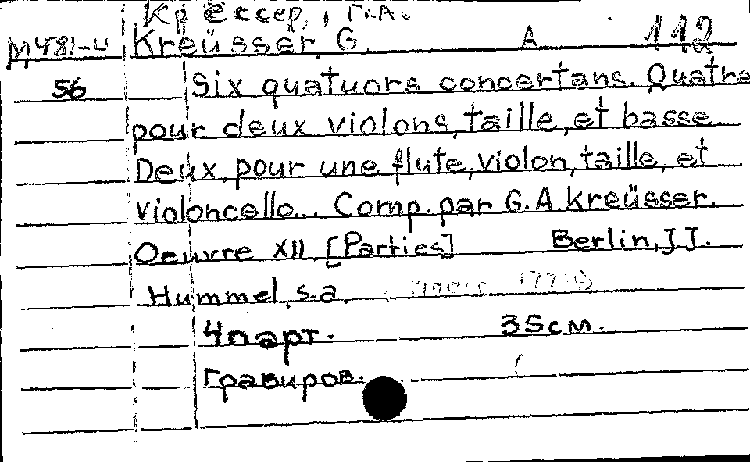 Крессер, Г.А.
М481-4 Kreüsser, G. A 112
56 Six quatuors concertans. Quatre
pour deux violons, taille, et basse
Deux, pour une flute, violon, taille, et
violoncello... Comp. par G.A Kreüsser.
Oeuvre XII [Parties] Berlin, J J.
Hummel, s.a.
4 парт. 35 см.
Гравиров.